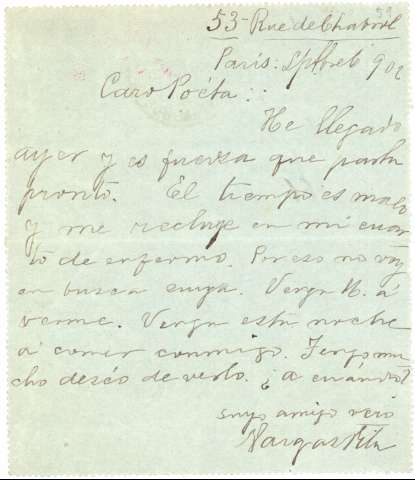 53 - Rue de Chabrol
Paris: Spbreb 902
Caro Poéta:
He llegado
ayer y es fuerza que parta
pronto. El tiempo es malo
y me recluye en mi cuar
to de enfermo. Por eso no voy
en busca suya. Venga U. á
verme. Venga esta noche
á comer conmigo. Tengo mu
cho deséo de verlo. ¿a cuándo?
suyo amigo
Vargas Vila